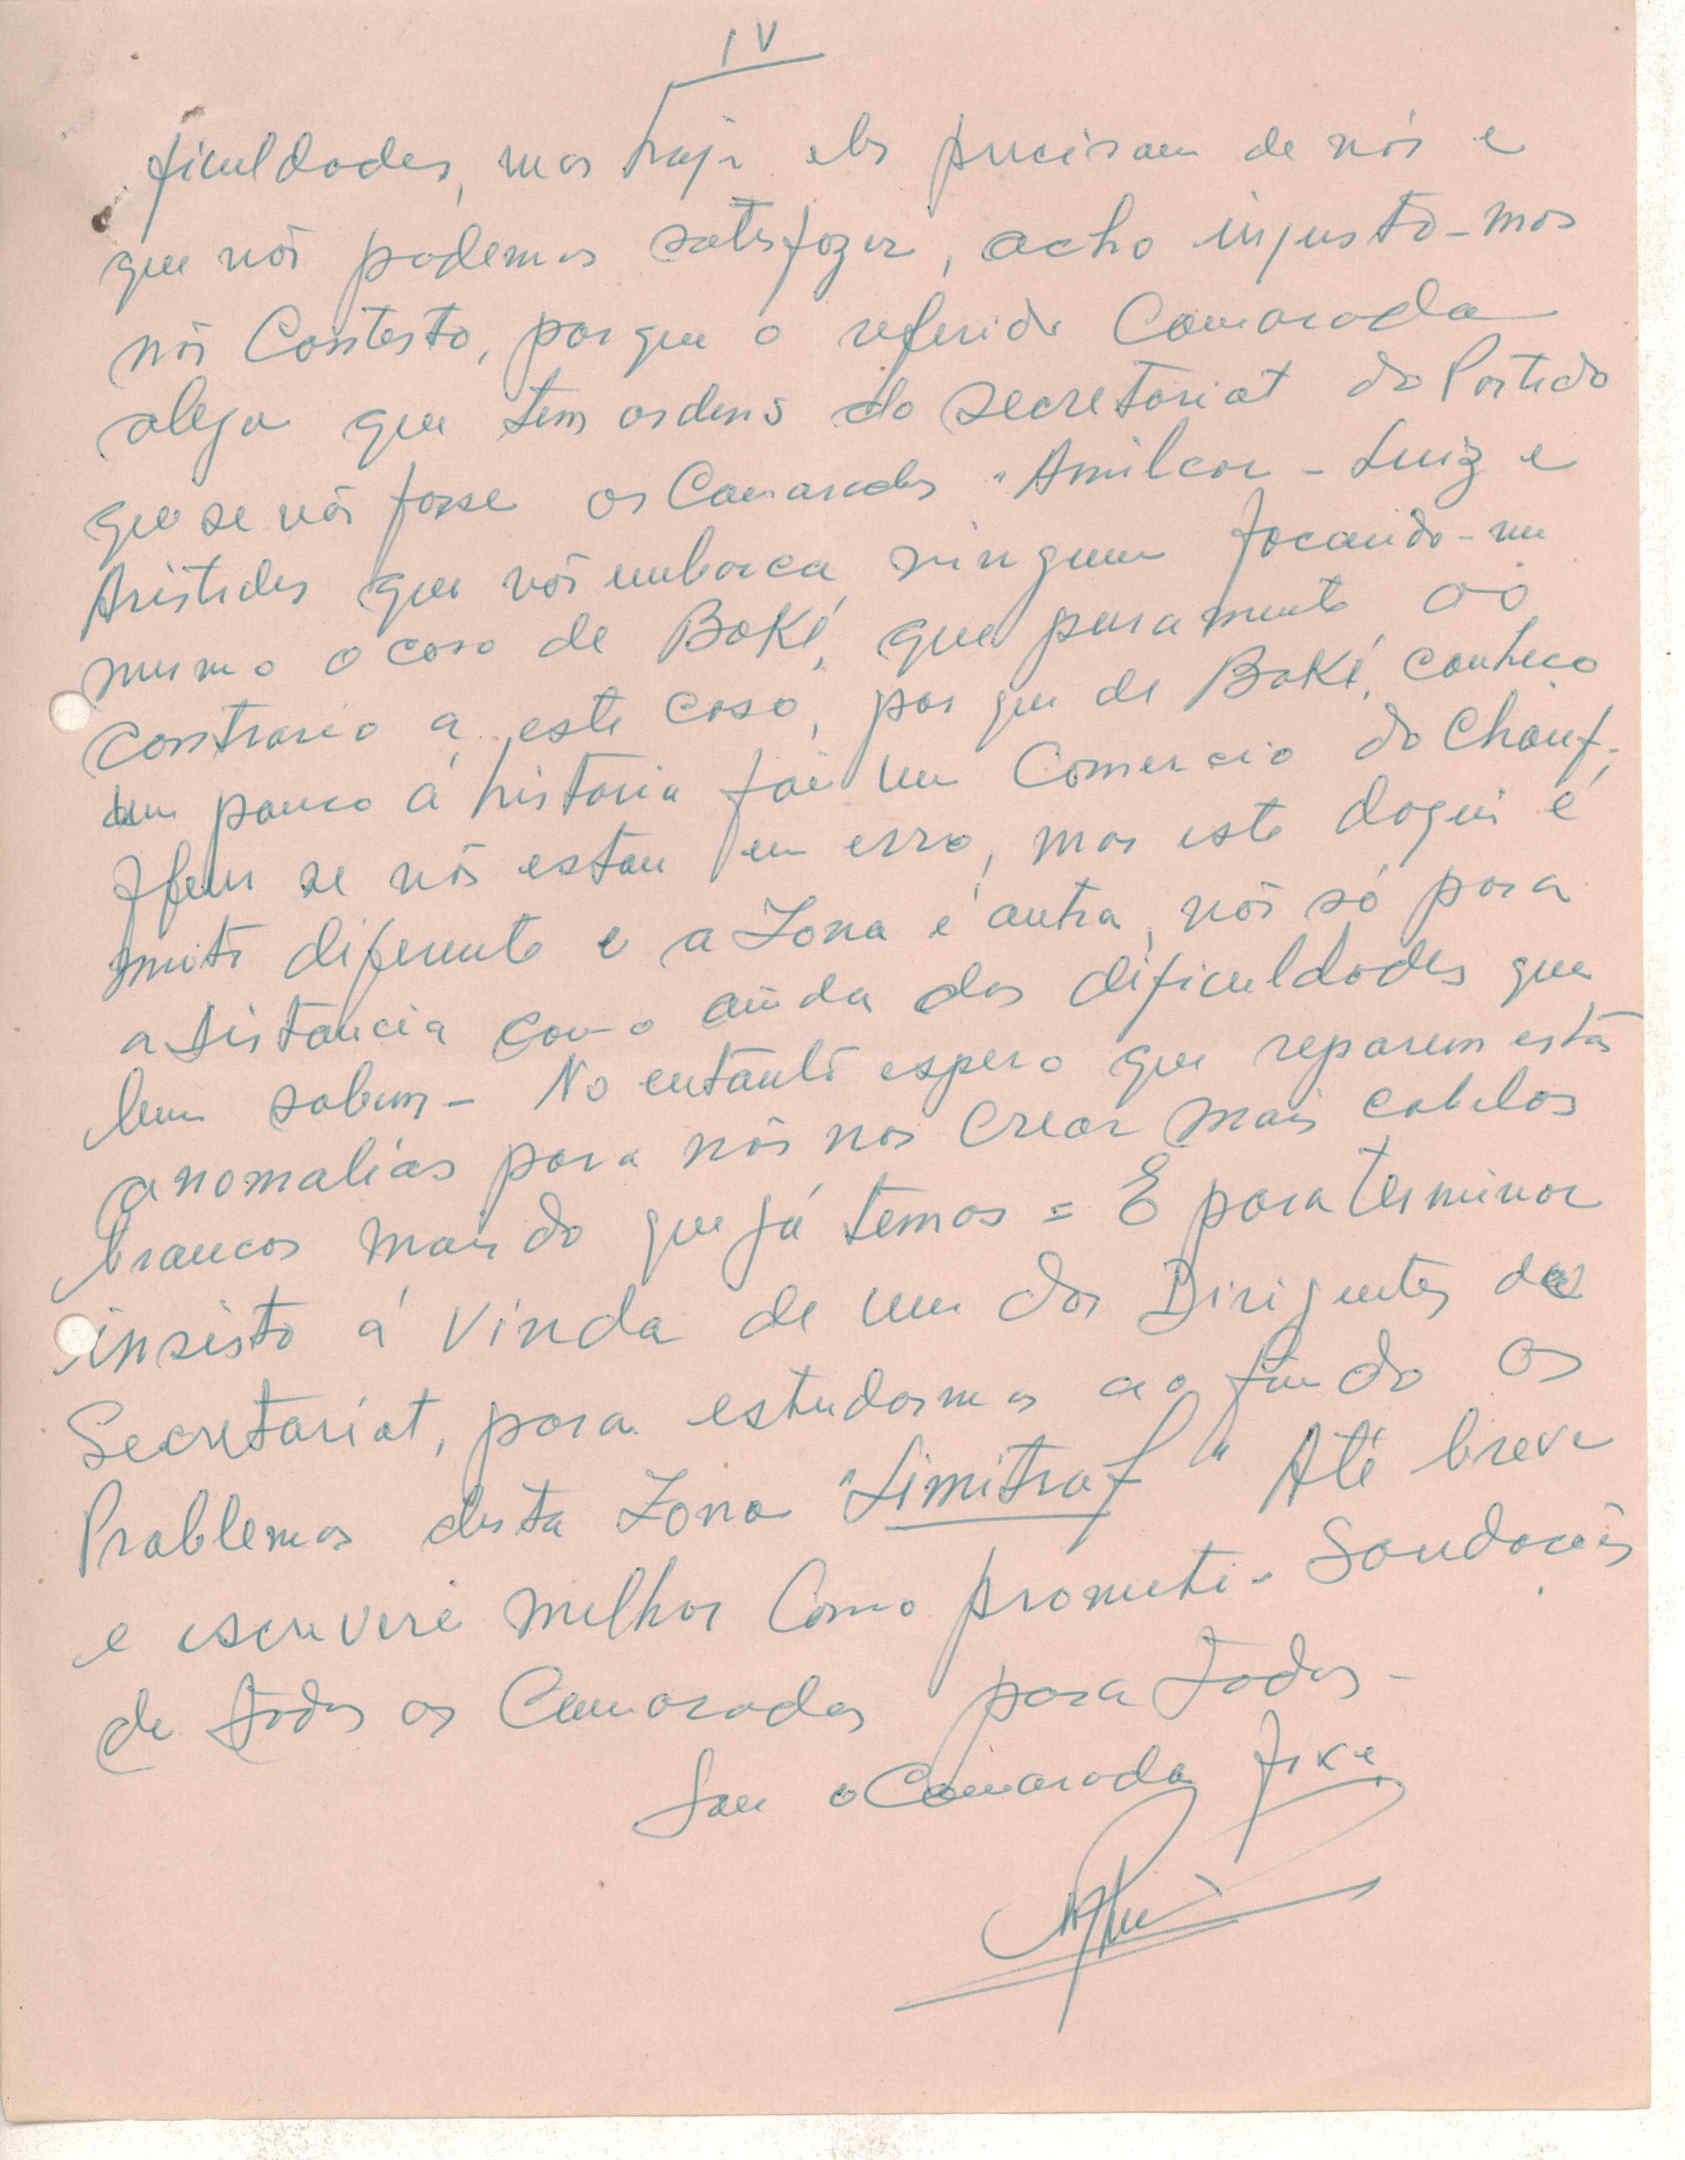 IV
ficuldades, mas hoje eles precisam de nós e
que nós podemos satisfazer, acho injusto - mas
nós Contesto, porque o referido Camarada
alega que tem ordens do Secretariat do Partido
que se nós fosse os Camaradas "Amilcar - Luiz e
Aristides que nós embarca ninguem focando-me
mesmo o caso de Boké, que puramente ao
contrario a este caso, por que de Boké, conheço
um pouco á historia foi um Comercio do Chauf-
ffeur se nós estou em erro, mas este daqui é
muito diferente e a Zona é outra, nós só para
a distancia como ainda das dificuldades que
bem sabem - No entanto espero que reparem estas
anomalias para nós nos Crear mais cabelos
brancos mais do que já temos = E para terminar
insisto á vinda de um dos Dirigentes do
Secretariat, para estudarmos ao fundo os
Problemas desta Zona "Limitraf" Até breve
e escreverei melhor Como prometi - Saudações
de todos os Camaradas para todos -
Sou o Camarada